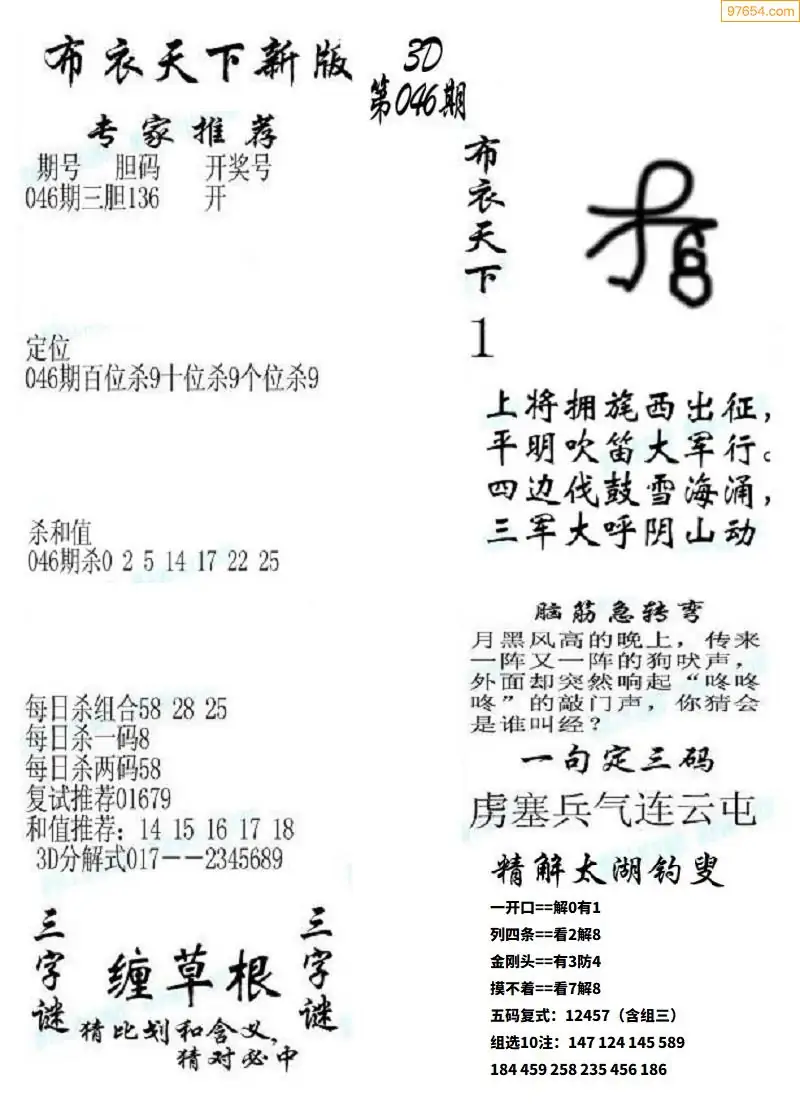 97654.com
布衣天下新版
3D
第046期
专家推荐
期号 胆码 开奖号
046期三胆136 开
定位
046期百位杀9十位杀9个位杀9
杀和值
046期杀0 2 5 14 17 22 25
每日杀组合58 28 25
每日杀一码8
每日杀两码58
复试推荐01679
和值推荐：14 15 16 17 18
3D分解式017——2345689
三字谜
缠草根
三字谜
猜比划和含义，
猜对必中
布衣天下
1
上将拥旄西出征，
平明吹笛大军行。
四边伐鼓雪海涌，
三军大呼阴山动
脑筋急转弯
月黑风高的晚上，传来
一阵又一阵的狗吠声，
外面却突然响起“咚咚
咚”的敲门声，你猜会
是谁叫经？
一句定三码
虏塞兵气连云屯
精解太湖钓叟
一开口==解0有1
列四条==看2解8
金刚头==有3防4
摸不着==看7解8
五码复式：12457（含组三）
组选10注：147 124 145 589
184 459 258 235 456 186